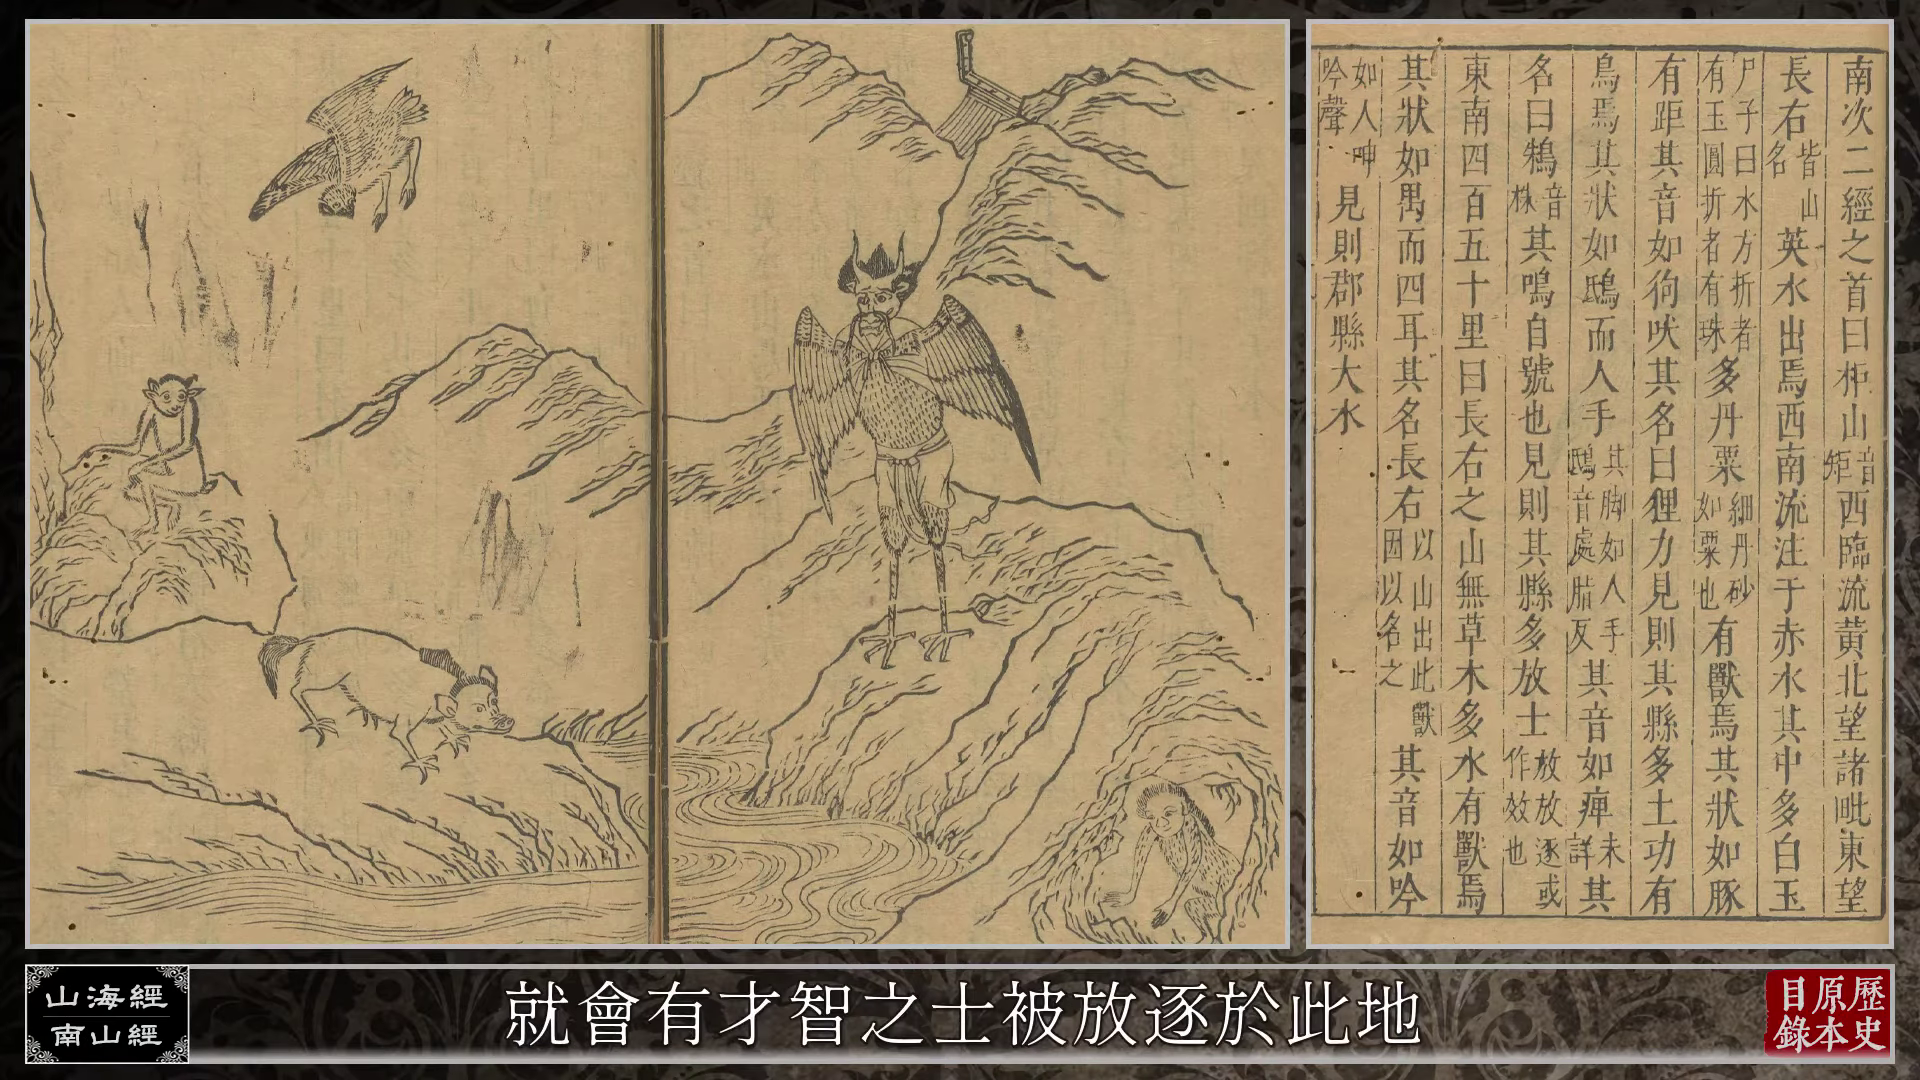 南次二經之首曰柜山音矩西臨流黃北望諸毗東望
長右皆山名英水出焉西南流注于赤水其中多白玉
尸子曰水方折者有玉圓折者有珠多丹粟細丹砂如粟也有獸焉其狀如豚
有距其音如狗吠其名曰狸力見則其縣多土功有
鳥焉其狀如鴟而人手其脚如人手鴟音處脂反其音如痺未詳其
名曰鴸音株其鳴自號也見則其縣多放士放放逐或作效也
東南四百五十里曰長右之山無草木多水有獸焉
其狀如禺而四耳其名長右以山出此獸因以名之其音如吟
如人呻吟聲見則郡縣大水
山海經
南山經
就會有才智之士被放逐於此地
歷史
原本
目錄